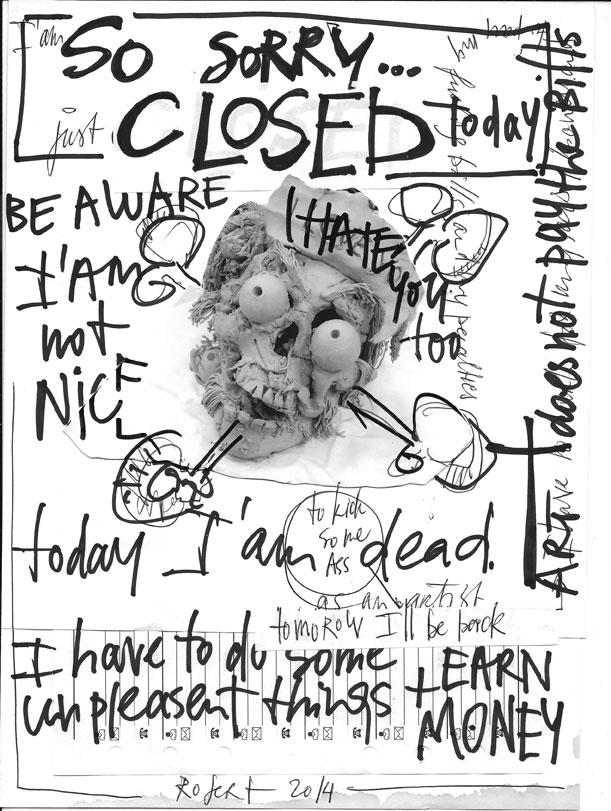 I'am
SO SORRY...
just CLOSED today
BE AWARE
I'AM
not
NiCE
I HATE
you
too
ART does not pay the Bills
today I'am dead.
to kick
some
Ass
as an artist
tomorow I'll be back
I have to do some
unpleasent things
+ EARN
MONEY
2014